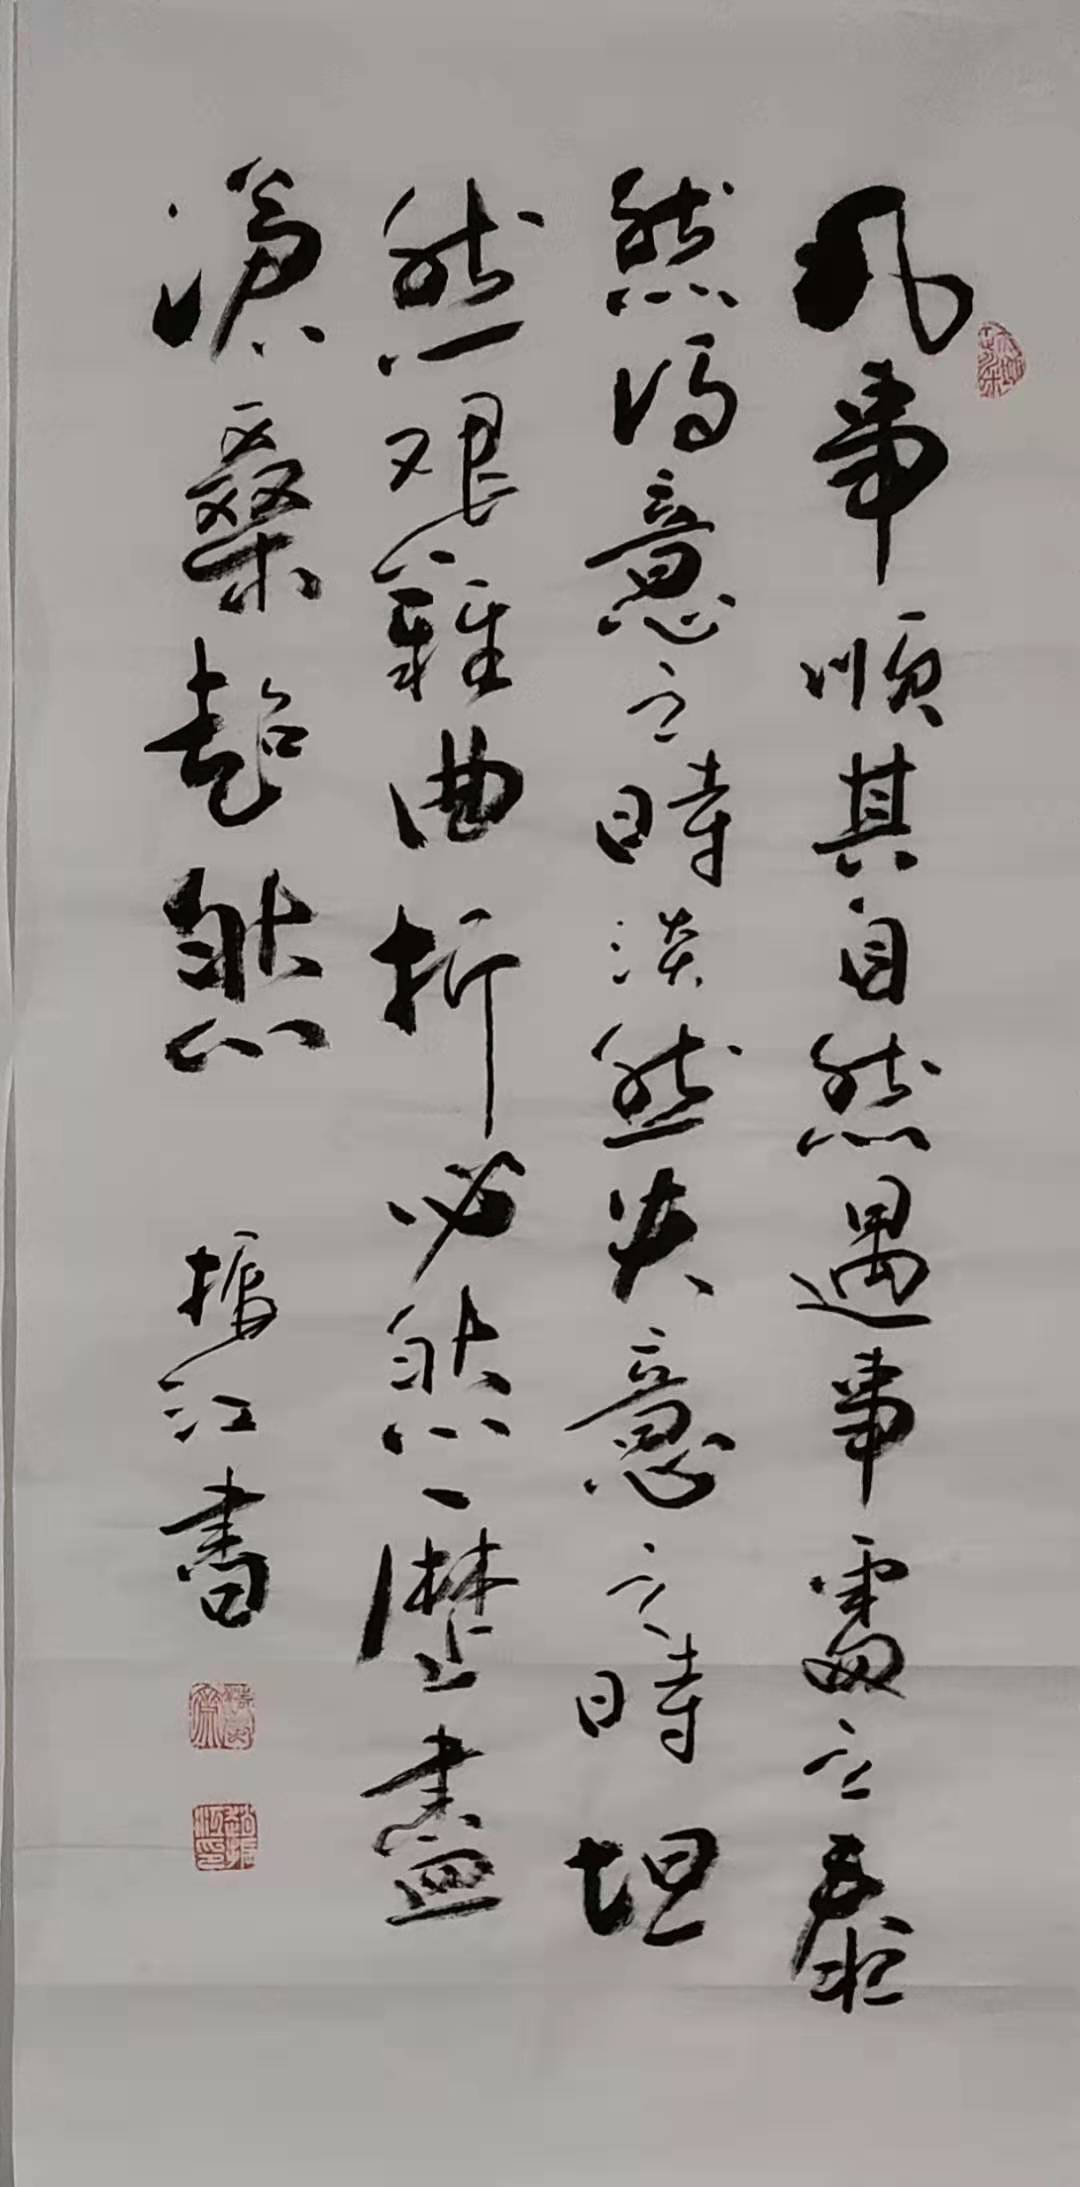 凡事順其自然遇事處之泰
然得意之時淡然失意之時坦
然艰難曲折必然歷盡
滄桑超然
振江書
趙振江印